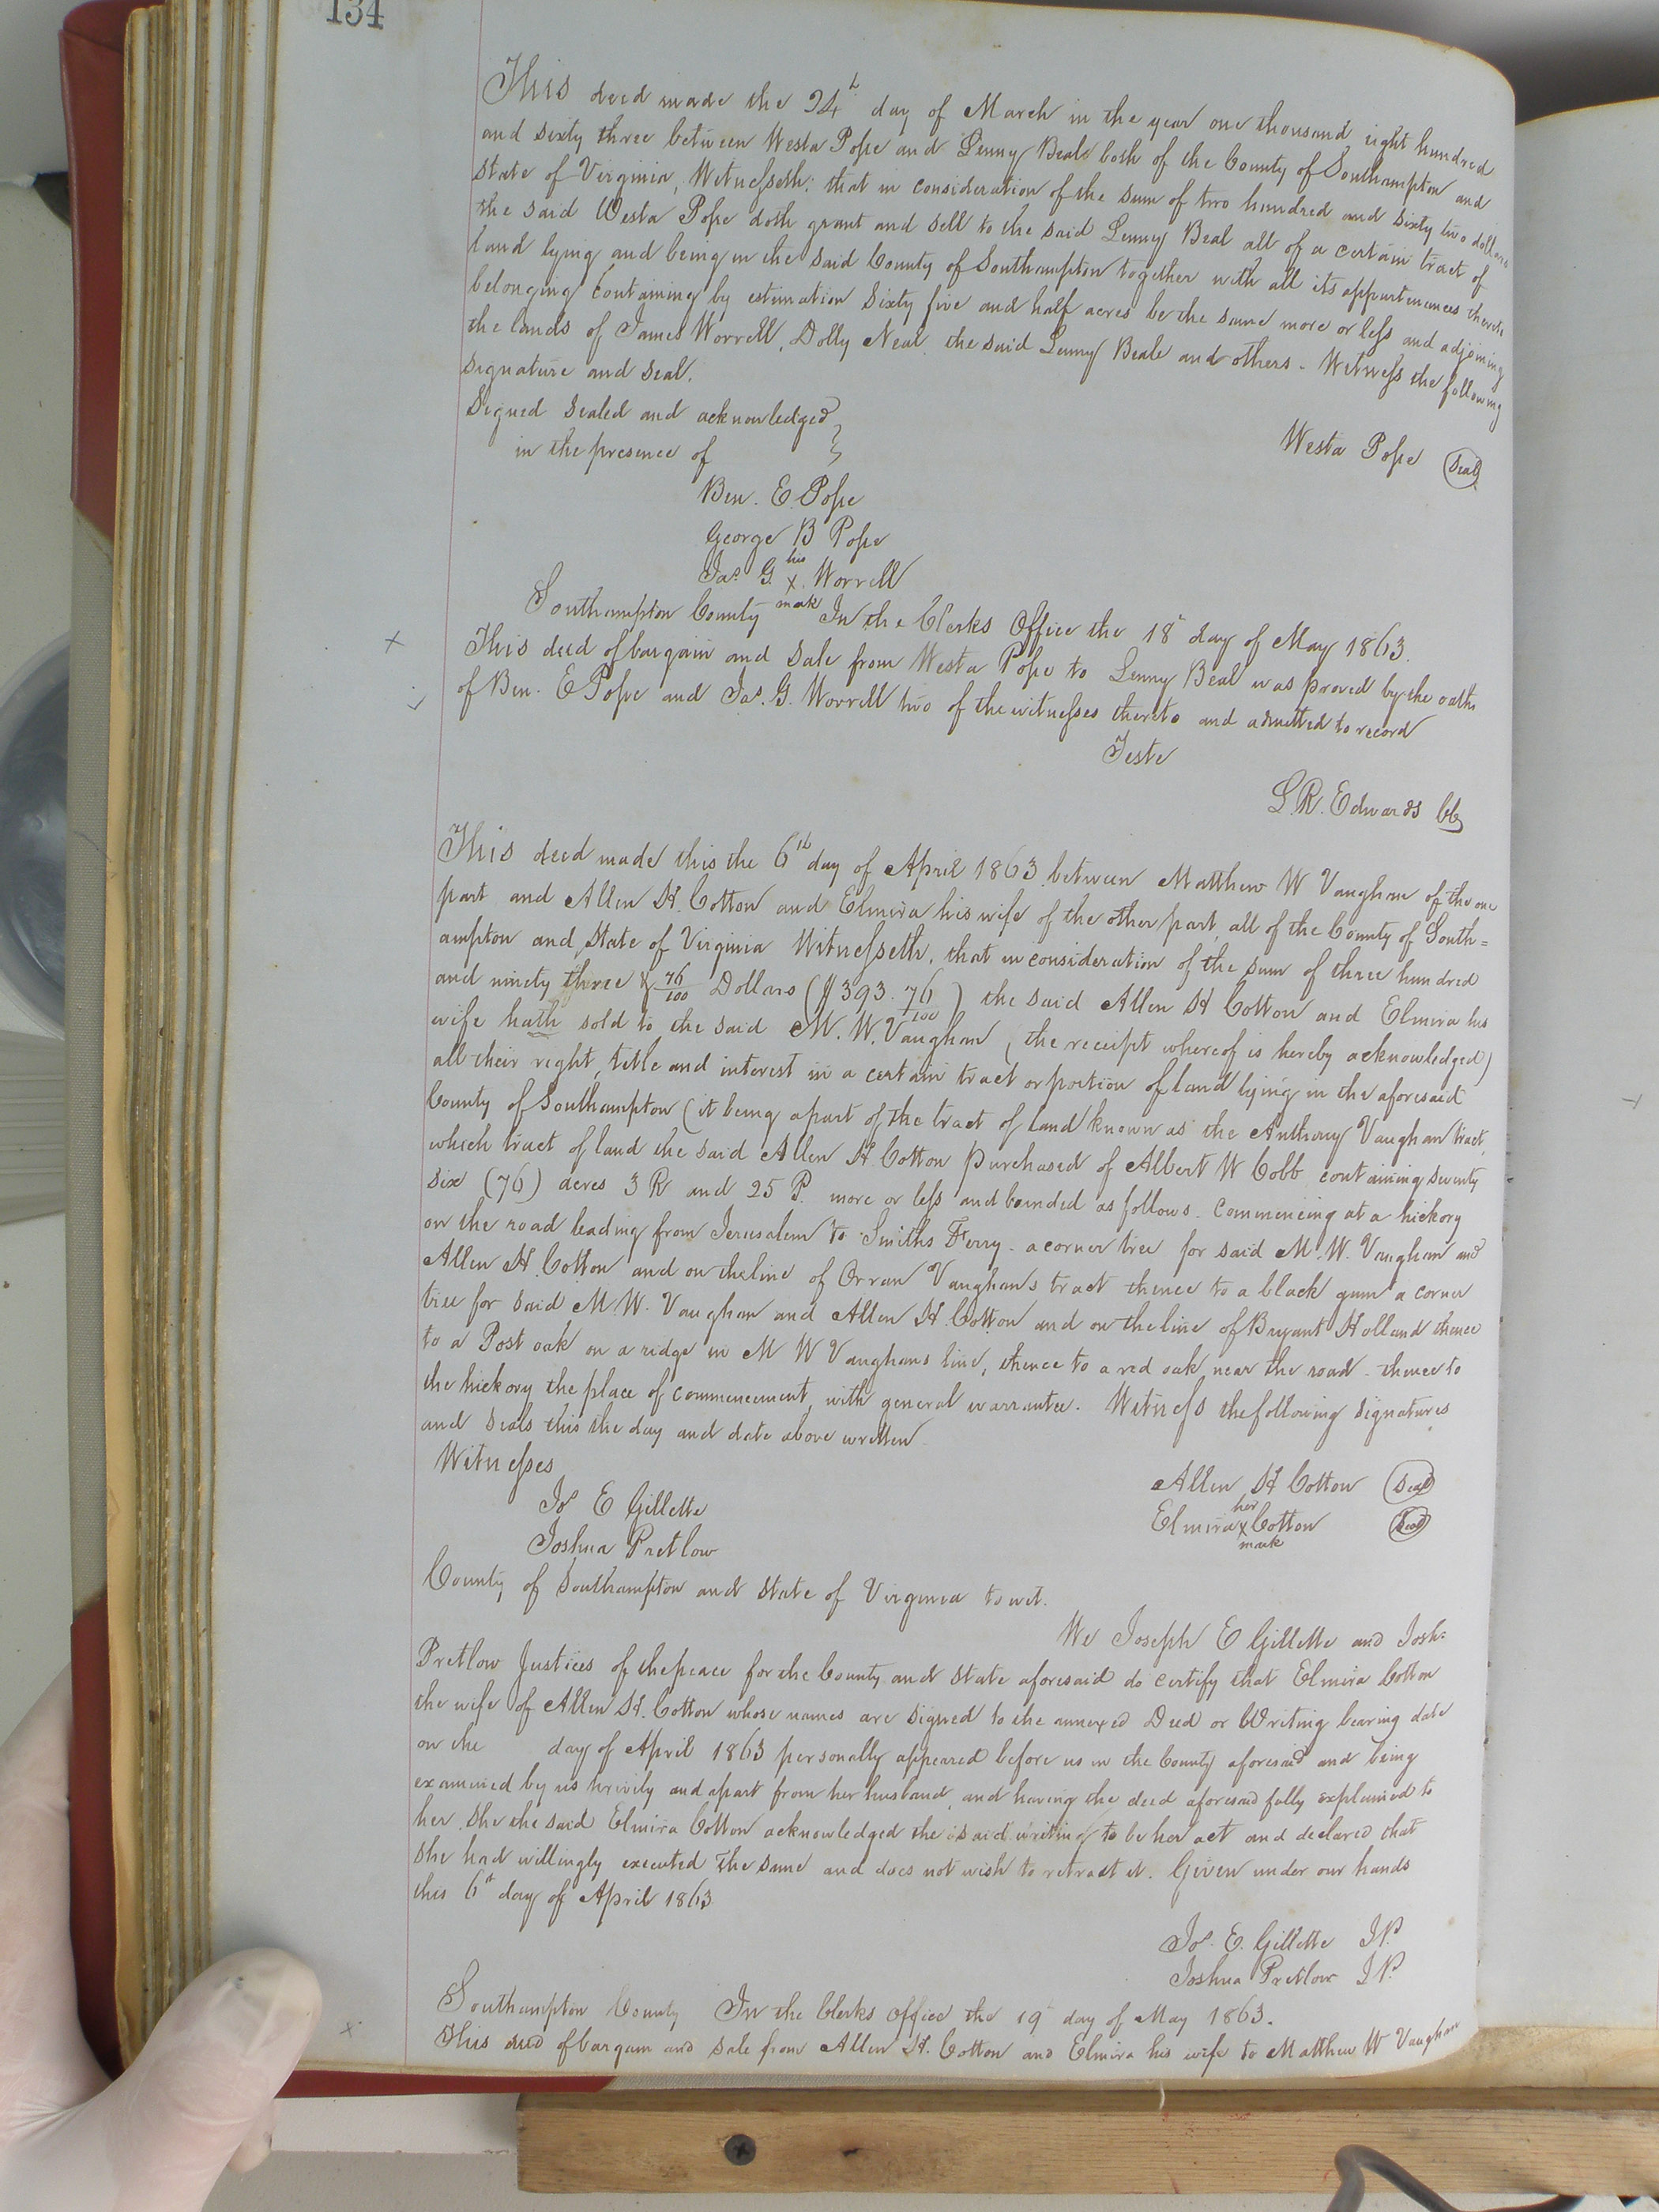 134
This deed made the 24th day of March in the year one thousand eight hundred
and sixty three between Westa Pope and Lenny Beal both of the County of Southampton and
State of Virginia, Witnesseth: that in consideration of the sum of two hundred and sixty two dollars
the said Westa Pope doth grant and sell to the said Lenny Beal all of a certain tract of
land lying and being in the said County of Southampton together with all its appurtenances thereto
belonging containing by estimation Sixty five and half acres be the same more or less and adjoining
the lands of James Worrell, Dolly Neal the said Lenny Beale and others - Witness the following
signature and seal.
Signed Sealed and acknowledged
in the presence of
Westa Pope Seal
Ben. E. Pope
George B Pope
Jas. G. his x mark Worrell
Southampton County In the Clerks Office the 18th day of May 1863.
This deed of bargain and Sale from Westa Pope to Lenny Beal was proved by the oaths
of Ben. E Pope and Jas. G. Worrell two of the witnesses thereto and admitted to record
Teste
L. R. Edwards Clk
This deed made this the 6th day of April 1863 between Matthew W Vaughan of the one
part and Allen H. Cotton and Elmira his wife of the other part, all of the County of South=
ampton and State of Virginia Witnesseth, that in consideration of the sum of three hundred
and ninety three & 76/100 Dollars ($393.76/100) the said Allen H Cotton and Elmira his
wife hath sold to the said M. W. Vaughan (the receipt whereof is hereby acknowledged)
all their right, title and interest in a certain tract or portion of land lying in the aforesaid
County of Southampton (it being a part of the tract of land known as the Anthony Vaughan tract,
which tract of land the said Allen H. Cotton purchased of Albert W Cobb containing seventy
six (76) acres 3 R and 25 P. more or less and bounded as follows. Commencing at a hickory
on the road leading from Jerusalem to Smiths Ferry - a corner tree for said M. W. Vaughan and
Allen H. Cotton and on the line of Orran Vaughan's tract thence to a black gum a corner
tree for said M. W. Vaughan and Allen H. Cotton and on the line of Bryant Holland thence
to a Post oak on a ridge in M W Vaughans line, thence to a red oak near the road - thence to
the hickory the place of commencement, with general warrantee. Witness the following signatures
and seals this the day and date above written
Witnesses
Allen H Cotton Seal
Jos E Gillette
Elmira her x mark Cotton Seal
Joshua Pretlow
County of Southampton and State of Virginia to wit.
We Joseph E Gillette and Josh:
Pretlow Justices of the peace for the County and State aforesaid do certify that Elmira Cotton
the wife of Allen H. Cotton whose names are signed to the annexed Deed or Writing bearing date
on the day of April 1863 personally appeared before us in the County aforesaid and being
examined by us privily and apart from her husband, and having the deed aforesaid fully explained to
her she the said Elmira Cotton acknowledged the said writing to be her act and declared that
she had willingly executed the same and does not wish to retract it. Given under our hands
this 6th day of April 1863
Jos. E. Gillette J.P.
Joshua Pretlow J.P.
Southampton County In the Clerks Office the 19th day of May 1863.
This deed of bargain and sale from Allen H. Cotton and Elmira his wife to Matthew W Vaughan